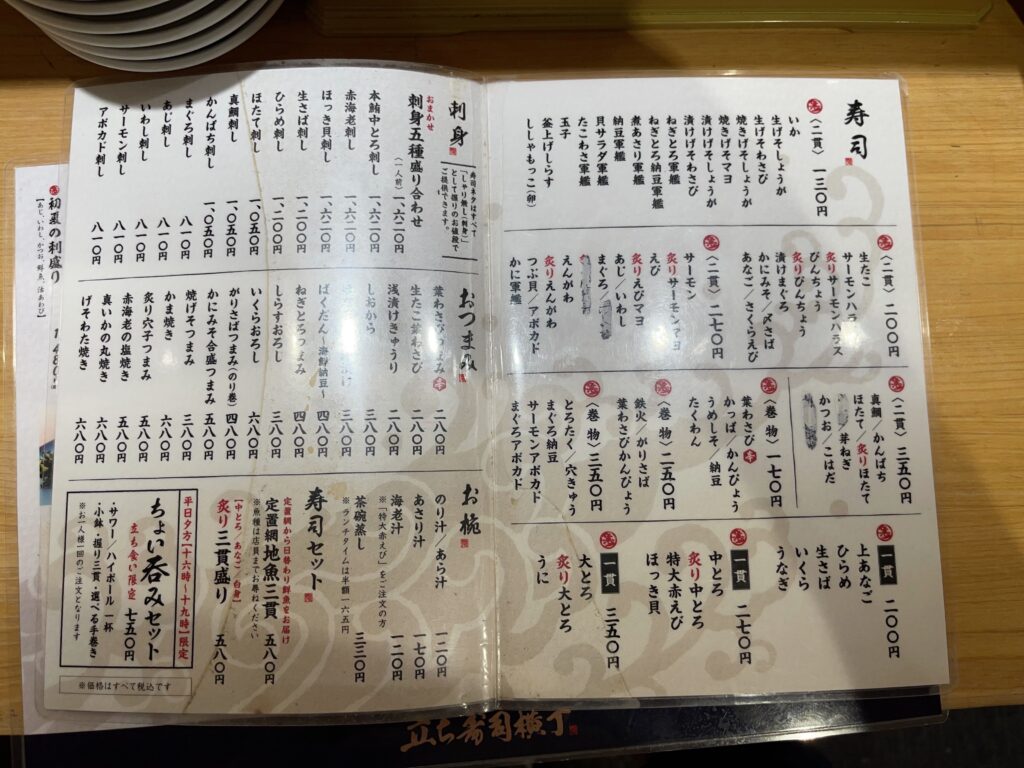 寿司
〈二貫〉 一三〇円
いか
生げそしょうが
生げそわさび
焼きげそしょうが
焼きげそマヨ
漬けげそしょうが
漬けげそわさび
ねぎとろ軍艦
ねぎとろ納豆軍艦
煮あさり軍艦
納豆軍艦
貝サラダ軍艦
たこわさ軍艦
玉子
釜上げしらす
ししゃもっこ(卵)
〈二貫〉 二〇〇円
生たこ
サーモンハラス
炙りサーモンハラス
びんちょう
炙りびんちょう
漬けまぐろ
かにみそ／〆さば
あなご／さくらえび
〈二貫〉 二七〇円
サーモン
炙りサーモンマヨ
えび
炙りえびマヨ
あじ／いわし
まぐろ
えんがわ
炙りえんがわ
つぶ貝／アボカド
かに軍艦
〈二貫〉 三五〇円
真鯛／かんぱち
ほたて／炙りほたて
芽ねぎ
かつお／こはだ
〈巻物〉 一七〇円
葉わさび 辛
かっぱ／かんぴょう
うめしそ／納豆
たくわん
〈巻物〉 二五〇円
鉄火／がりさば
葉わさびかんぴょう
〈巻物〉 三五〇円
とろたく／穴きゅう
まぐろ納豆
サーモンアボカド
まぐろアボカド
一貫 二〇〇円
上あなご
ひらめ
生さば
いくら
うなぎ
一貫 二七〇円
中とろ
炙り中とろ
特大赤えび
ほっき貝
一貫 三五〇円
大とろ
炙り大とろ
うに
刺身
寿司ネタはすべて
「しゃり無し(刺身)」
として握りのお値段で
ご提供できます。
おまかせ
刺身五種盛り合わせ
(一人前) 一、六二〇円
本鮪中とろ刺し 一、六二〇円
赤海老刺し 一、六二〇円
ほっき貝刺し 一、二〇〇円
ひらめ刺し 一、二〇〇円
生さば刺し 一、二〇〇円
ほたて刺し 一、〇五〇円
真鯛刺し 一、〇五〇円
かんぱち刺し 一、〇五〇円
まぐろ刺し 八一〇円
あじ刺し 八一〇円
いわし刺し 八一〇円
サーモン刺し 八一〇円
アボカド刺し 八一〇円
おつまみ
葉わさびつまみ 辛 二八〇円
生たこ葉わさび 二八〇円
浅漬けきゅうり 二八〇円
しおから 三八〇円
ばくだん〜海鮮納豆〜 四八〇円
ねぎとろつまみ 四八〇円
しらすおろし 三八〇円
いくらおろし 六八〇円
がりさばつまみ(のり巻) 四八〇円
かにみそ合盛つまみ 五八〇円
焼げそつまみ 三八〇円
かま焼き 六八〇円
炙り穴子つまみ 五八〇円
赤海老の塩焼き 五八〇円
真いかの丸焼き 六八〇円
げそわた焼き 六八〇円
お椀
のり汁／あら汁 二二〇円
あさり汁 一七〇円
海老汁 一二〇円
※「特大赤えび」をご注文の方
茶碗蒸し 三三〇円
※ランチタイムは半額一六五円
寿司セット
定置網から日替わり鮮魚をお届け
定置網地魚三貫 五八〇円
※魚種は店員までお尋ねください
【中とろ／あなご／白身】
炙り三貫盛り 五八〇円
平日夕方【十六時〜十九時】限定
ちょい呑みセット
立ち食い限定 七五〇円
・サワー／ハイボール 一杯
・小鉢・握り三貫・選べる手巻き
※お一人様一回のご注文となります
※価格はすべて税込です
初夏の刺盛り
【あじ、いわし、かつお、鮮魚、活あわび】
立ち寿司横丁